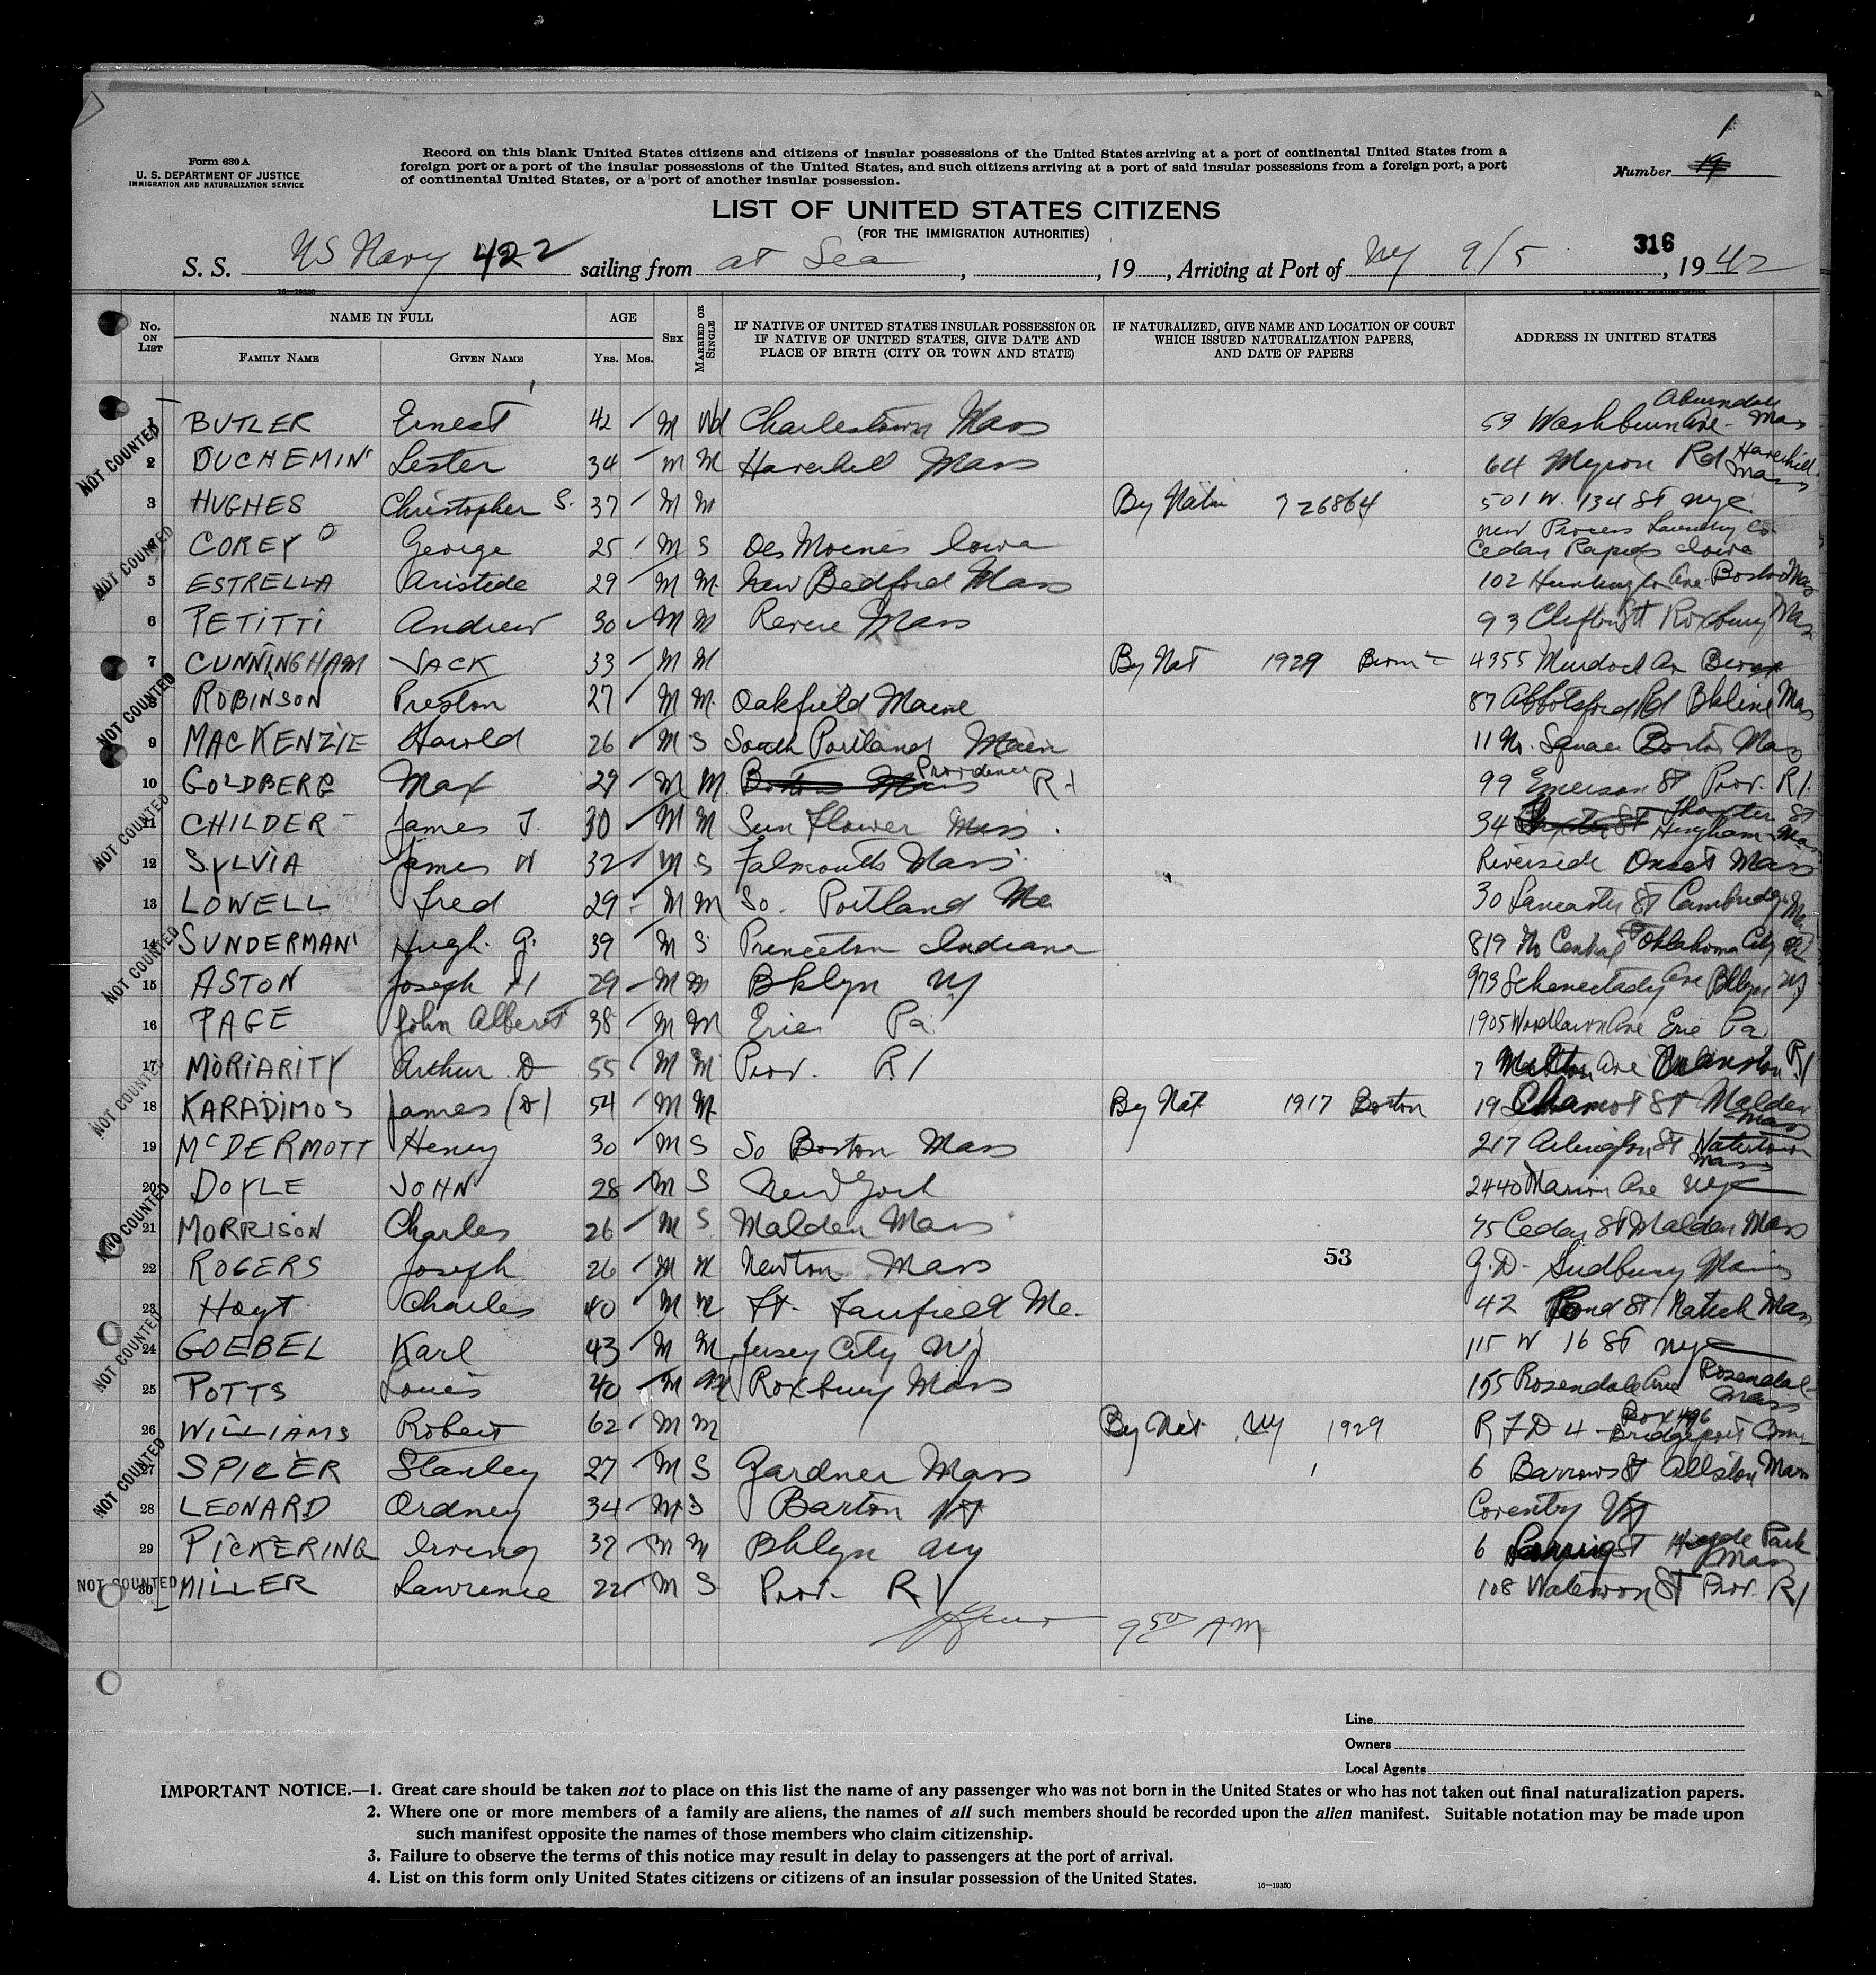 1
Form 630 A
U. S. DEPARTMENT OF JUSTICE
IMMIGRATION AND NATURALIZATION SERVICE
Record on this blank United States citizens and citizens of insular possessions of the United States arriving at a port of continental United States from a
foreign port or a port of the insular possessions of the United States, and such citizens arriving at a port of said insular possessions from a foreign port, a port
of continental United States, or a port of another insular possession.
Number 19
LIST OF UNITED STATES CITIZENS
(FOR THE IMMIGRATION AUTHORITIES)
316
S. S. US Navy 422 sailing from at Sea , , 19 , Arriving at Port of NY 9/5 , 19 42
16—19350
No. ON LIST
NAME IN FULL
FAMILY NAME GIVEN NAME
AGE
YRS. MOS.
SEX
MARRIED OR SINGLE
IF NATIVE OF UNITED STATES INSULAR POSSESSION OR
IF NATIVE OF UNITED STATES, GIVE DATE AND
PLACE OF BIRTH (CITY OR TOWN AND STATE)
IF NATURALIZED, GIVE NAME AND LOCATION OF COURT
WHICH ISSUED NATURALIZATION PAPERS,
AND DATE OF PAPERS
ADDRESS IN UNITED STATES
1 BUTLER Ernest 42 M Wd Charlestown Mass 59 Washburn Ave - Auburndale Mass
2 DUCHEMIN Lester 34 M M Haverhill Mass 64 Myron Rd Haverhill Mass
3 HUGHES Christopher S. 37 M M By Natu 726864 501 W. 134 St NYC
4 COREY George 25 M S Des Moines Iowa New Process Laundry Co Cedar Rapids Iowa
5 ESTRELLA Aristide 29 M M New Bedford Mass 102 Huntington Ave Boston Mass
6 PETITTI Andrew 30 M M Revere Mass 93 Clifton St Roxbury Mass
7 CUNNINGHAM JACK 33 M M By Nat 1929 4355 Murdock Av Bronx
8 ROBINSON Preston 27 M M Oakfield Maine 87 Abbotsford Rd Bkline Mass
9 MACKENZIE Harold 26 M S South Portland Main 11 No. Square Boston Mass
10 GOLDBERG Max 29 M M Providence R.I 99 Emerson St Prov. R I.
11 CHILDER James J. 30 M M Sun Flower Miss. 34 Thaxter St Hingham Mass
12 SYLVIA James W 32 M S Falmouth Mass. Riverside Onset Mass
13 LOWELL Fred 29 M M So. Portland Me 30 Lancaster St Cambridge Mass
14 SUNDERMAN Hugh. G. 39 M S Princeton Indiana 819 No Central Oklahoma City
15 ASTON Joseph H 29 M M Bklyn NY 973 Schenectady Ave Bklyn NY
16 PAGE John Albert 38 M M Erie Pa 1905 Woodlawn Ave Erie Pa
17 MORIARITY Arthur D 55 M M Prov. R I 7 Ave Cranston R I
18 KARADIMOS James (D) 54 M M By Nat 1917 Boston 19 St Malden Mass
19 McDERMOTT Henry 30 M S So Boston Mass 217 Arlington St Watertown Mass
20 DOYLE JOHN 28 M S New York 2440 Marion Ave NYC
21 MORRISON Charles 26 M S Malden Mass 75 Cedar St Malden Mass
53
22 ROGERS Joseph 26 M M Newton Mass G.D. Sudbury Mass
23 Hoyt Charles 40 M M Ft. Fairfield Me. 42 Pond St Natick Mass
24 GOEBEL Karl 43 M M Jersey City NJ 115 W 16 St NYC
25 POTTS Louis 40 M M Roxbury Mass 155 Rosendale Ave Rosendale Mass
26 WILLIAMS Robert 62 M M By Nat NY 1929 R F D 4 - Box 496 Bridgeport Conn
27 SPICER Stanley 27 M S Gardner Mass 6 Barrows St Allston Mass
28 LEONARD Ordney 34 M S Barton VT Coventry VT
29 PICKERING Irving 37 M M Bklyn NY 6 St Hyde Park Mass
30 MILLER Lawrence 22 M S Prov. R I 108 Waterman St Prov. R I
9 50 AM
NOT COUNTED
NOT COUNTED
NOT COUNTED
NOT COUNTED
NOT COUNTED
NOT COUNTED
NOT COUNTED
NOT COUNTED
NOT COUNTED
NOT COUNTED
Line
Owners
Local Agents
IMPORTANT NOTICE.—1. Great care should be taken not to place on this list the name of any passenger who was not born in the United States or who has not taken out final naturalization papers.
2. Where one or more members of a family are aliens, the names of all such members should be recorded upon the alien manifest. Suitable notation may be made upon
such manifest opposite the names of those members who claim citizenship.
3. Failure to observe the terms of this notice may result in delay to passengers at the port of arrival.
4. List on this form only United States citizens or citizens of an insular possession of the United States.
16—19350